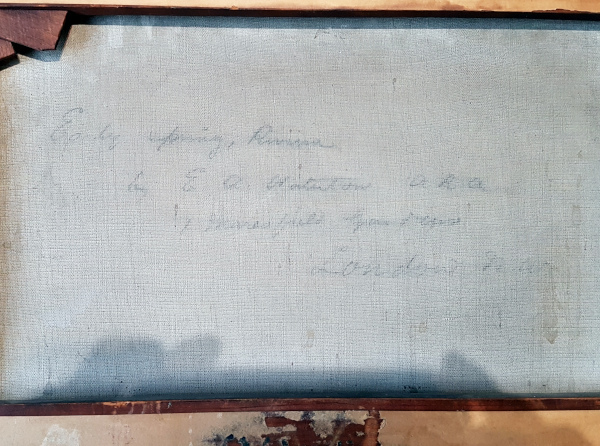 Early spring, Riviera
by E A Waterlow A R A
Maresfield Gardens
London N W